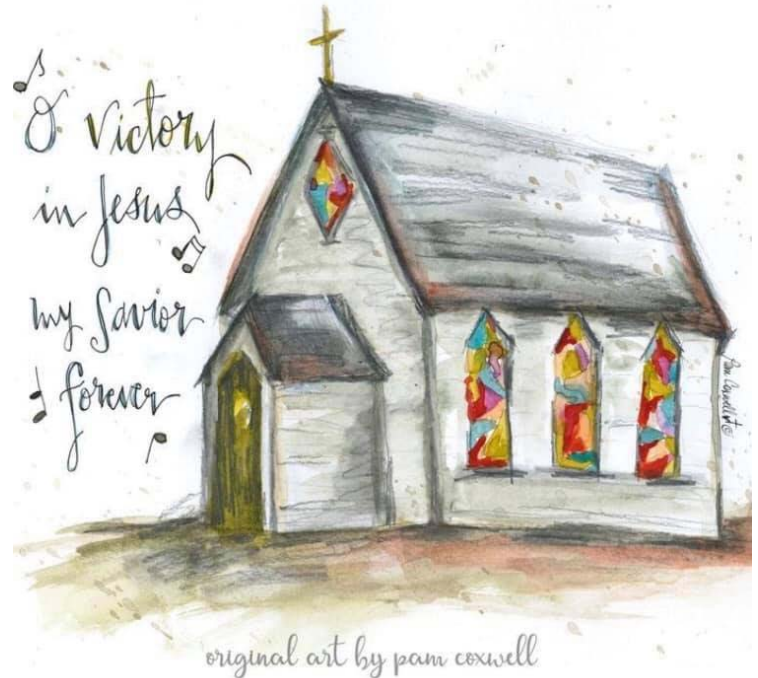 O Victory
in Jesus
my Savior
forever
Pam Coxwell ©
original art by pam coxwell